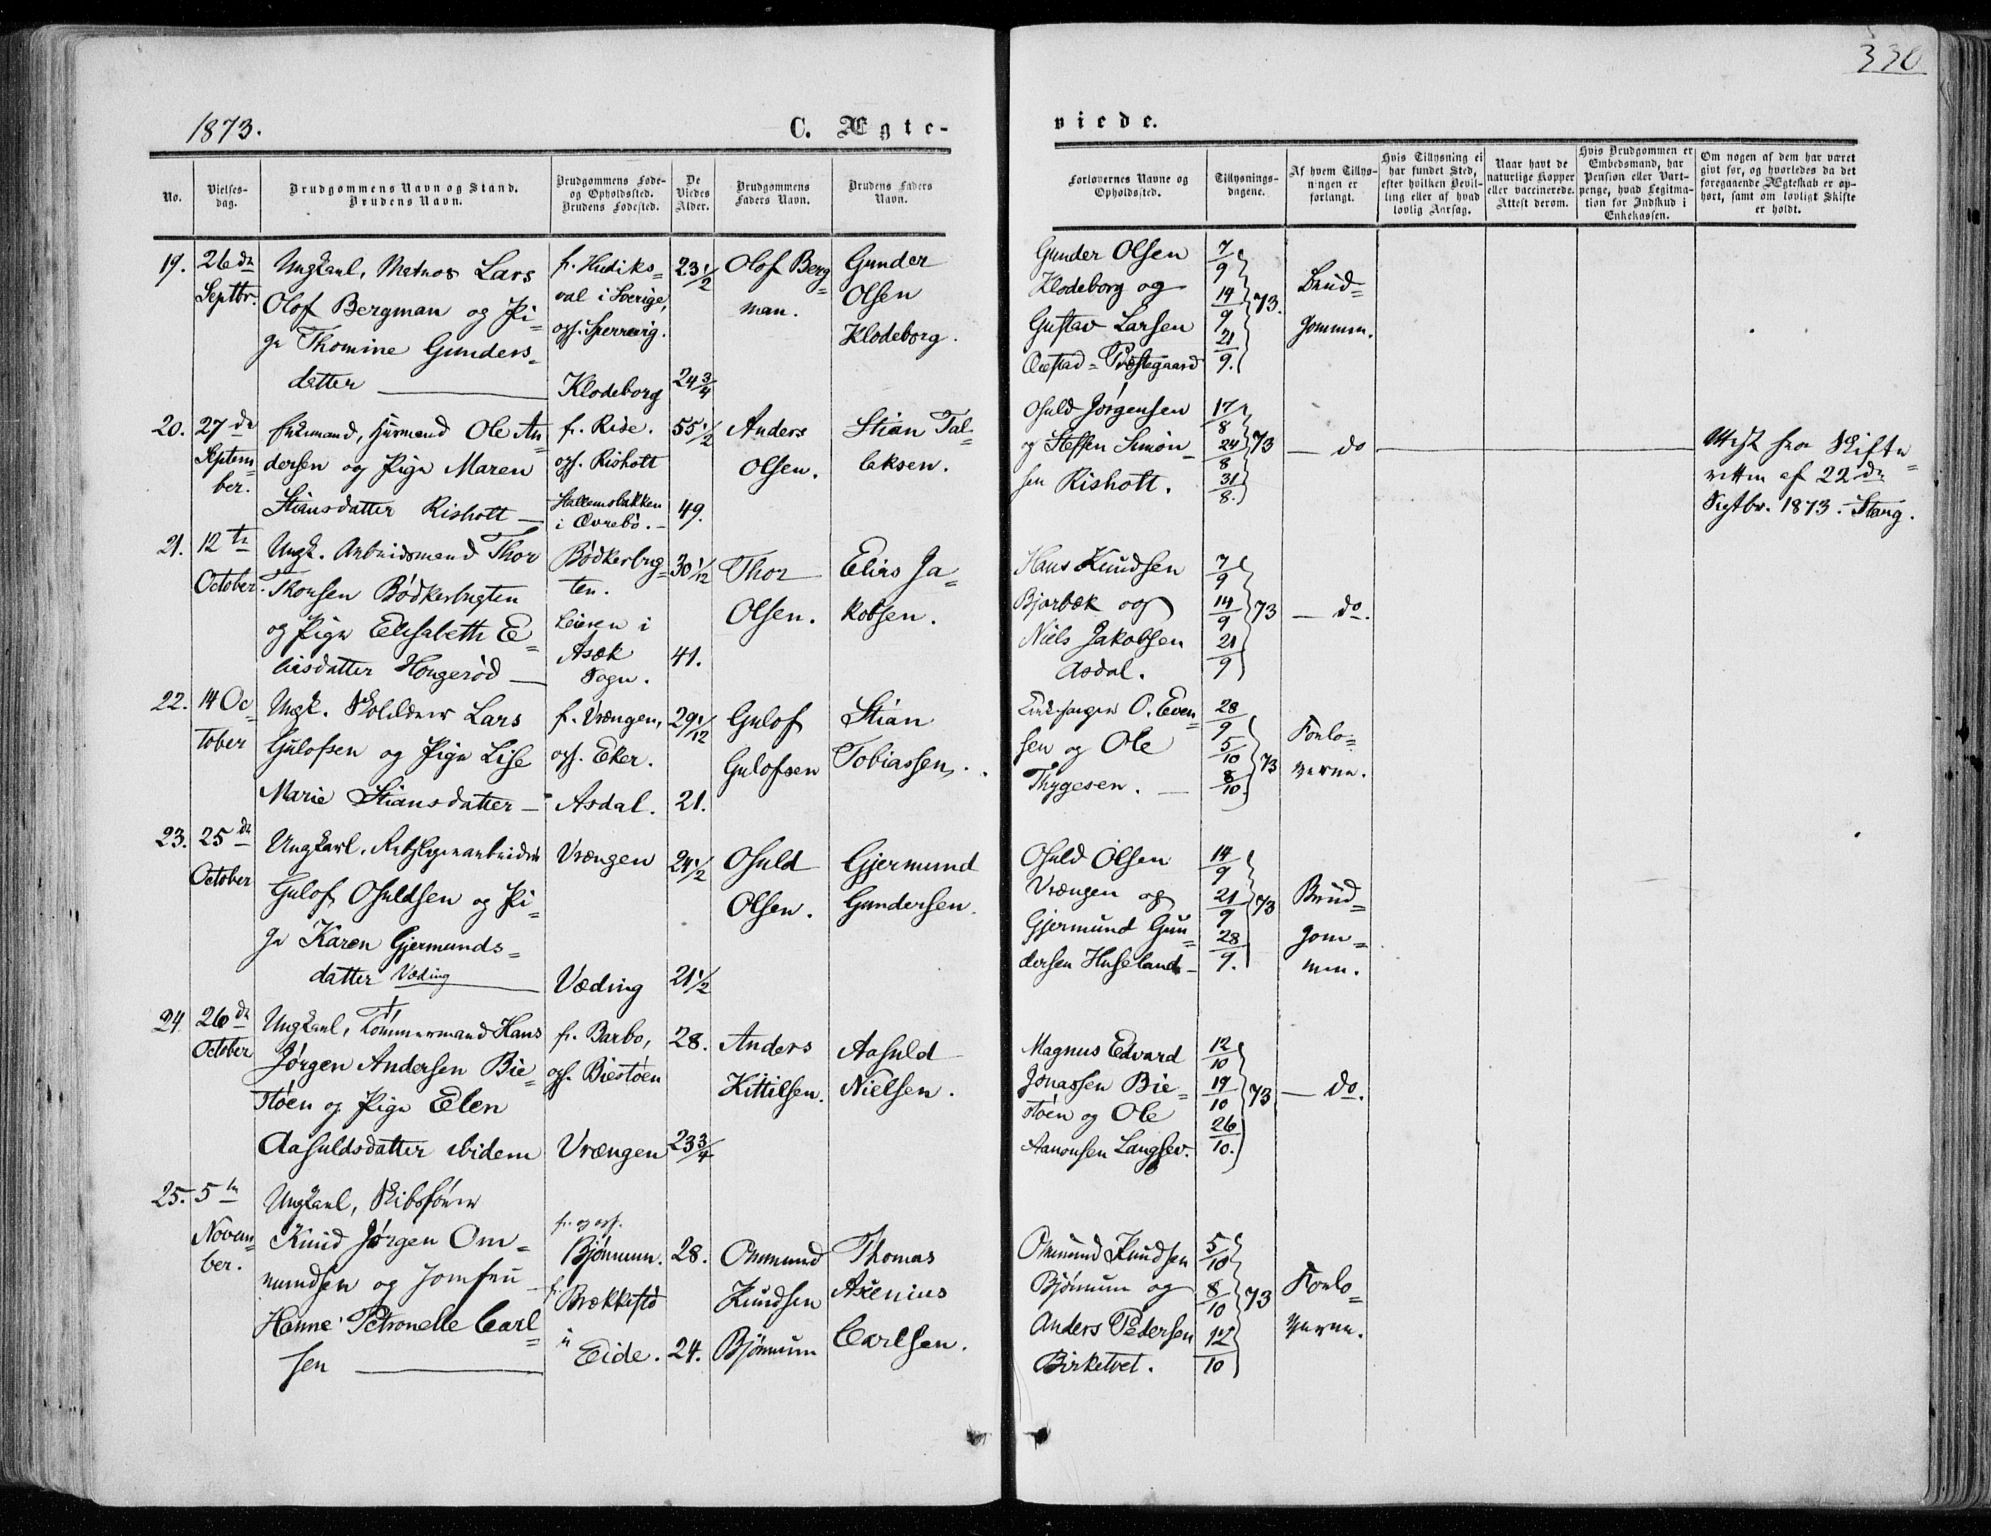 330
1873.
C. Ægte-
viede.
No.
Vielses-
dag.
Brudgommens Navn og Stand.
Brudens Navn.
Brudgommens Føde-
og Opholdssted.
Brudens Fødested.
De
Viedes
Alder.
Brudgommens
Faders Navn.
Brudens Faders
Navn.
Forlovernes Navne og
Opholdssted.
Tillysnings-
dagene.
Af hvem Tillys-
ningen er
forlangt.
Hvis Tillysning ei
har fundet Sted,
efter hvilken Bevil-
ling eller af hvad
lovlig Aarsag.
Naar havt de
naturlige Kopper
eller vaccinerede.
Attest derom.
Hvis Brudgommen er
Embedsmand, har
Pension eller Vart-
penge, hvad Legitima-
tion for Indskud i
Enkekassen.
Om nogen af dem har været
givt før, og hvorledes da det
foregaaende Ægteskab er op-
hørt, samt om lovligt Skifte
er holdt.
19.
26de
Septbr.
Ungkarl, Matros Lars
Olof Bergman og Pi-
ge Thomine Gunders-
datter
f. Hudiks-
val i Sverige,
oph. Sperrevig.
Klodeborg
23 1/2
24 3/4
Olof Berg-
man.
Gunder
Olsen
Klodeborg.
Gunder Olsen
Klodeborg og
Gustav Larsen
Øiestad-Præstegaard
7/9
14/9
21/9.
73.
Brud-
gommen.
20.
27de
Septem-
ber.
Enkemand, Husmand Ole An-
dersen og Pige Maren
Stiansdatter Risholt
f. Rise.
oph. Risholt
i Øvrebø.
55 1/2
49.
Anders
Olsen.
Stian Tal-
leksen.
Osuld Jørgensen
og Steffen Simon-
sen Risholt.
17/8
24/8
31/8.
73
do
Attest fra Skifte-
retten af 22de
Septbr. 1873. Stang.
21.
12te
October.
Ungk. Arbeidsmand Thor
Thorsen Bødkerbugten
og Pige Elisabeth E-
liasdatter Hougerød
Bødkerbug-
ten.
Leieren i
Asæk
Sogn.
30 1/12
41.
Thor
Olsen.
Elias Ja-
kobsen.
Hans Knudsen
Bjorbæk og
Niels Jakobsen
Asdal.
7/9
14/9
21/9
73
do.
22.
14 Oc-
tober
Ungk. Lars
Gulofsen og Pige Lise
Marie Stiansdatter
f. Vrængen,
oph. Eker.
Asdal.
29 1/12
21.
Gulof
Gulofsen
Stian
Tobiassen.
Kirkesanger O. Even-
sen og Ole
Thygesen.
28/9
5/10
8/10.
73
Forlo-
verne.
23.
25de
October
Ungkarl,
Gulof Osuldsen og Pi-
ge Karen Gjermunds-
datter Væding
Vrængen
Væding
24 1/2
21 1/2
Osuld
Olsen.
Gjermund
Gundersen.
Osuld Olsen
Vrængen og
Gjermund Gun-
dersen Huseland
14/9
21/9
28/9.
73
Brud-
gom-
men.
24
26de
October
Ungkarl, Tømmermand Hans
Jørgen Andersen Bie-
støen og Pige Elen
Aasuldsdatter ibidem
f. Barbo,
oph. Biestøen
Vrængen
28.
23 3/4
Anders
Kittilsen.
Aasuld
Nielsen.
Magnus Edvard
Jonassen Bie-
støen og Ole
Aanonsen Langsev.
12/10
19/10
26/10.
73
do.
25.
5te
Novem-
ber.
Ungkarl, Skibsfører
Knud Jørgen Om-
mundsen og Jomfru
Hanne Petronelle Carl-
sen
f. og oph.
Bjønnum.
f. Brækkestø
i Eide.
28.
24.
Ommund
Knudsen
Bjønnum
Thomas
Axenius
Carlsen.
Ommund Knudsen
Bjønnum og
Anders Pedersen
Birketvet.
5/10
8/10
12/10
73
Forlo-
verne.